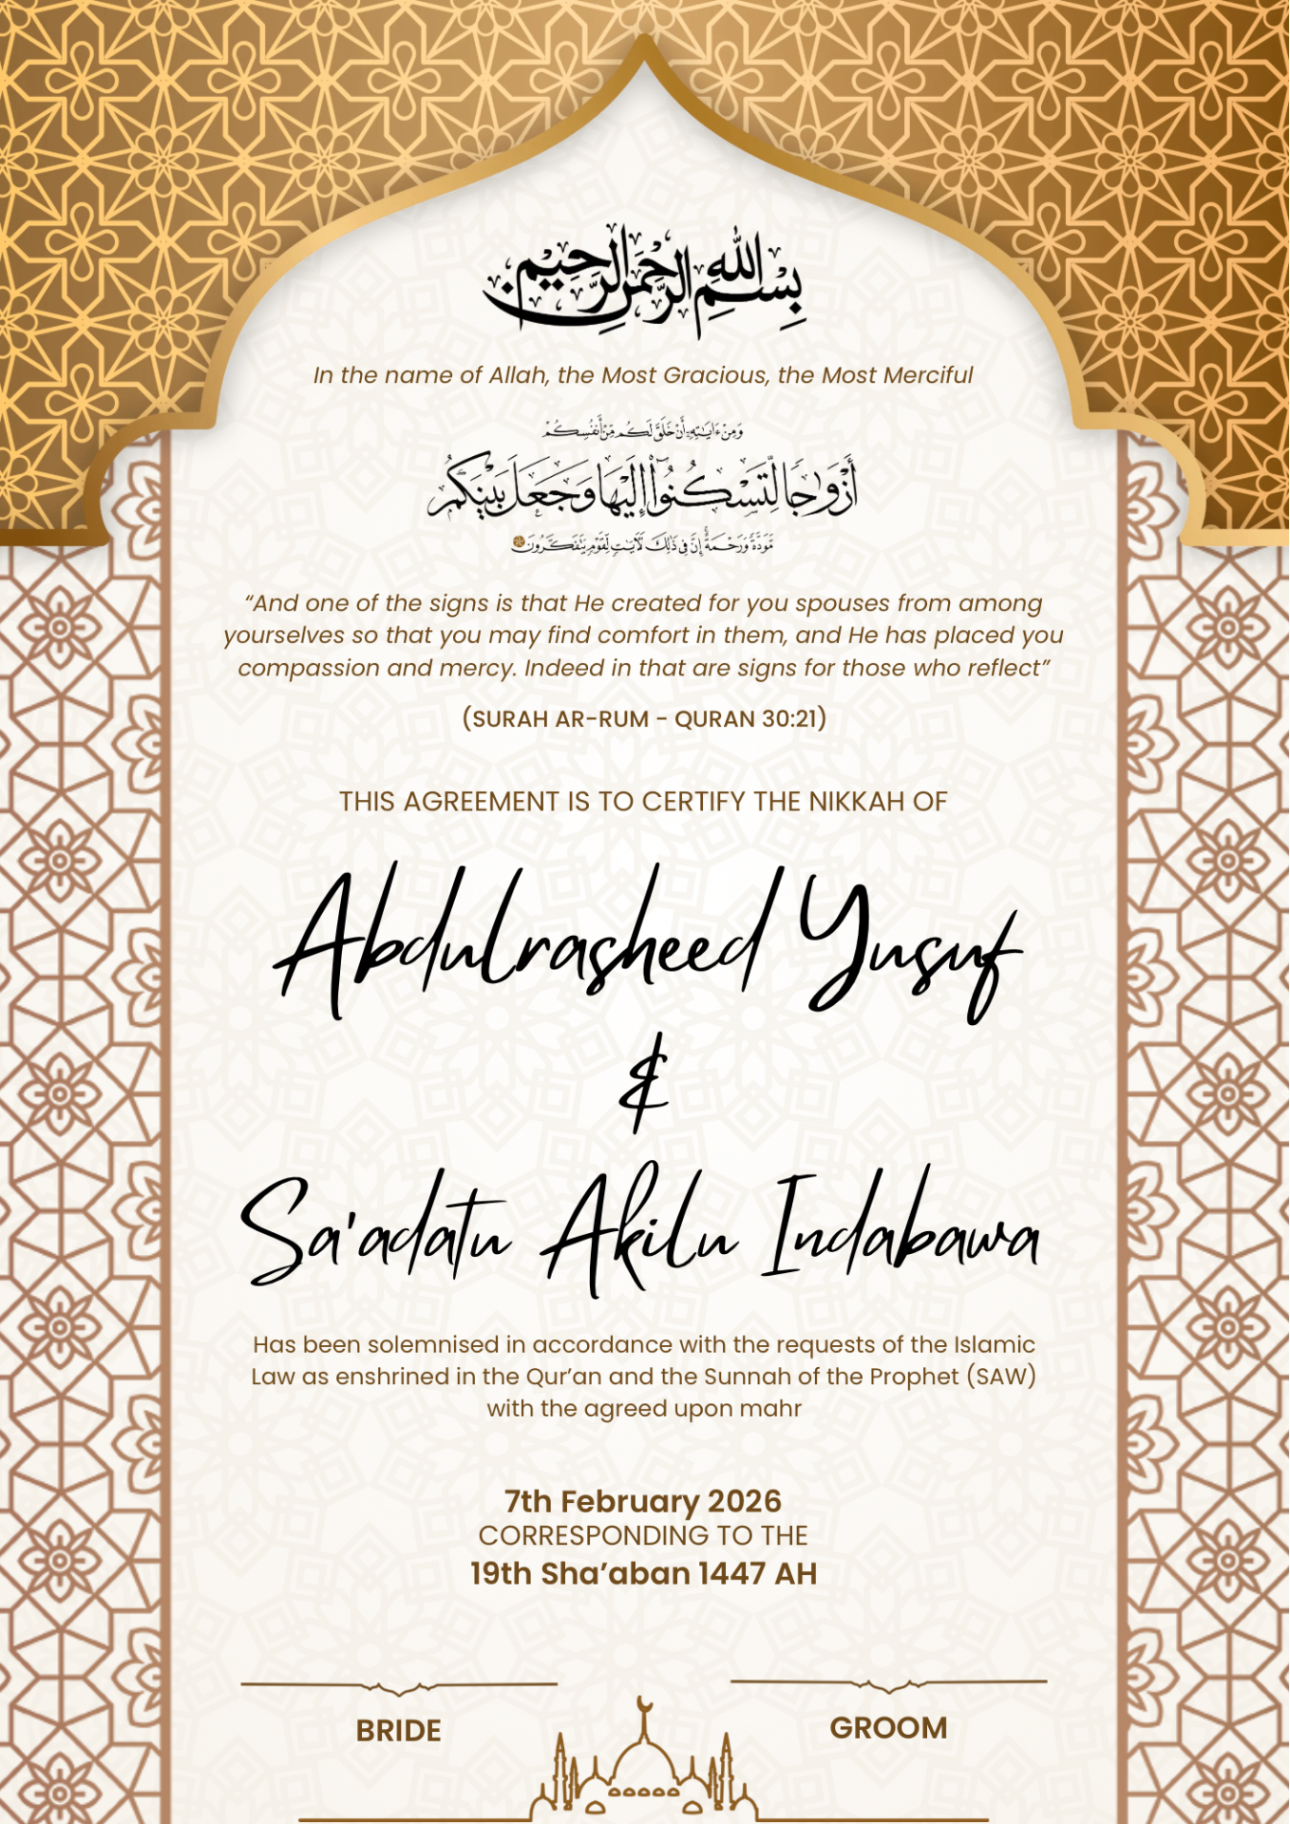 بِسْمِ اللَّهِ الرَّحْمَٰنِ الرَّحِيمِ
In the name of Allah, the Most Gracious, the Most Merciful
وَمِنْ ءَايَٰتِهِۦٓ أَنْ خَلَقَ لَكُم مِّنْ أَنفُسِكُمْ
أَزْوَٰجًا لِّتَسْكُنُوٓا۟ إِلَيْهَا وَجَعَلَ بَيْنَكُم
مَّوَدَّةً وَرَحْمَةً إِنَّ فِى ذَٰلِكَ لَءَايَٰتٍ لِّقَوْمٍ يَتَفَكَّرُونَ
“And one of the signs is that He created for you spouses from among
yourselves so that you may find comfort in them, and He has placed you
compassion and mercy. Indeed in that are signs for those who reflect”
(SURAH AR-RUM - QURAN 30:21)
THIS AGREEMENT IS TO CERTIFY THE NIKKAH OF
Abdulrasheed Yusuf
&
Sa'adatu Akilu Indabawa
Has been solemnised in accordance with the requests of the Islamic
Law as enshrined in the Qur’an and the Sunnah of the Prophet (SAW)
with the agreed upon mahr
7th February 2026
CORRESPONDING TO THE
19th Sha’aban 1447 AH
BRIDE
GROOM